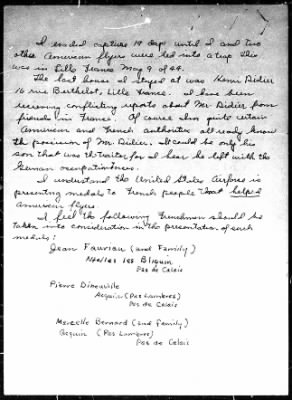 I evaded capture 19 days until I and two
other American flyers were led into a trap this
was in Lille France May 9 of 44.
The last house I stayed at was Henri Didier
16 rue Berthelot, Lille France. I have been
receiving conflicting reports about Mr. Didier from
friends in France. Of course I am quite certain
American and French authorities all ready know
the position of Mr. Didier. It could be only his
son that was the traitor for I hear he left with the
German occupation
I understand the United States Airforce is
presenting medals to French people that helped
American flyers.
I feel the following Frenchmen should be
taken into consideration in the presentation of such
medals:
Jean Fauriau (and Family)
les
Pas de Calais
Pierre
(Pas Lumbres)
Pas de Calais
Marcelle Bernard (and Family)
Acquin (Pas Lumbres)
Pas de Calais